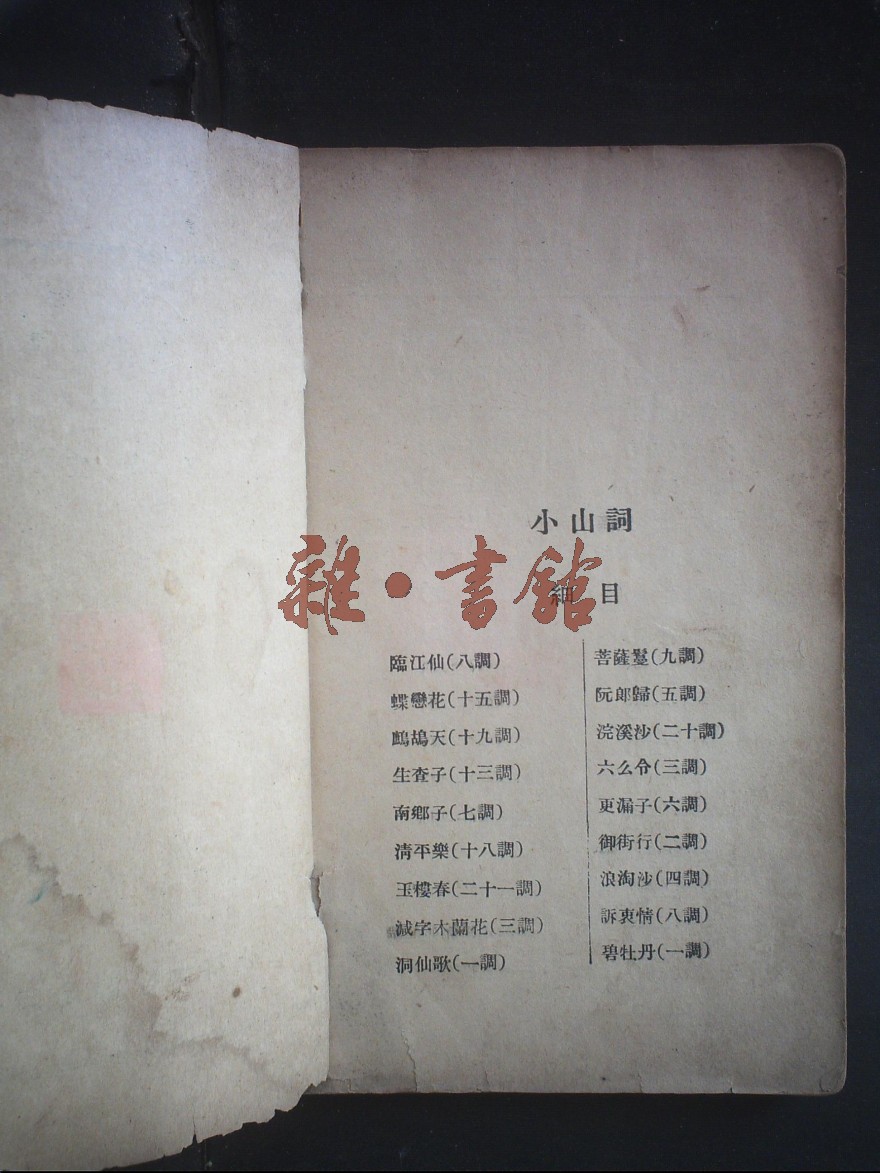 小山詞
雜·書館
細目
臨江仙(八調)
蝶戀花(十五調)
鷓鴣天(十九調)
生查子(十三調)
南鄉子(七調)
淸平樂(十八調)
玉樓春(二十一調)
減字木蘭花(三調)
洞仙歌(一調)
菩薩鬘(九調)
阮郎歸(五調)
浣溪沙(二十調)
六么令(三調)
更漏子(六調)
御街行(二調)
浪淘沙(四調)
訴衷情(八調)
碧牡丹(一調)